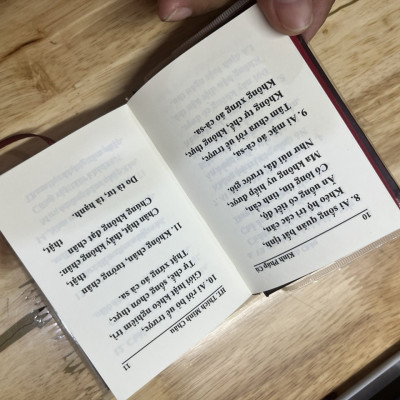 20
Kinh Pháp Cú
8. Ai sống quán bất tịnh,
Khéo hộ trì các căn,
Ăn uống có tiết độ,
Có lòng tin, tinh cần,
Ma không uy hiếp được,
Như núi đá, trước gió.
9. Ai mặc áo cà-sa.
Tâm chưa rời uế trược,
Không tự chế, không thực,
Không xứng áo cà-sa.
HT. Thích Minh Châu
21
10. Ai rời bỏ uế trược,
Giới luật khéo nghiêm trì,
Tự chế, sống chơn thực,
Thật xứng áo cà-sa.
11. Không chân, tưởng chân thật,
Chân thật, thấy không chân:
Chúng không đạt chân thật,
Do tà tư, tà hạnh.